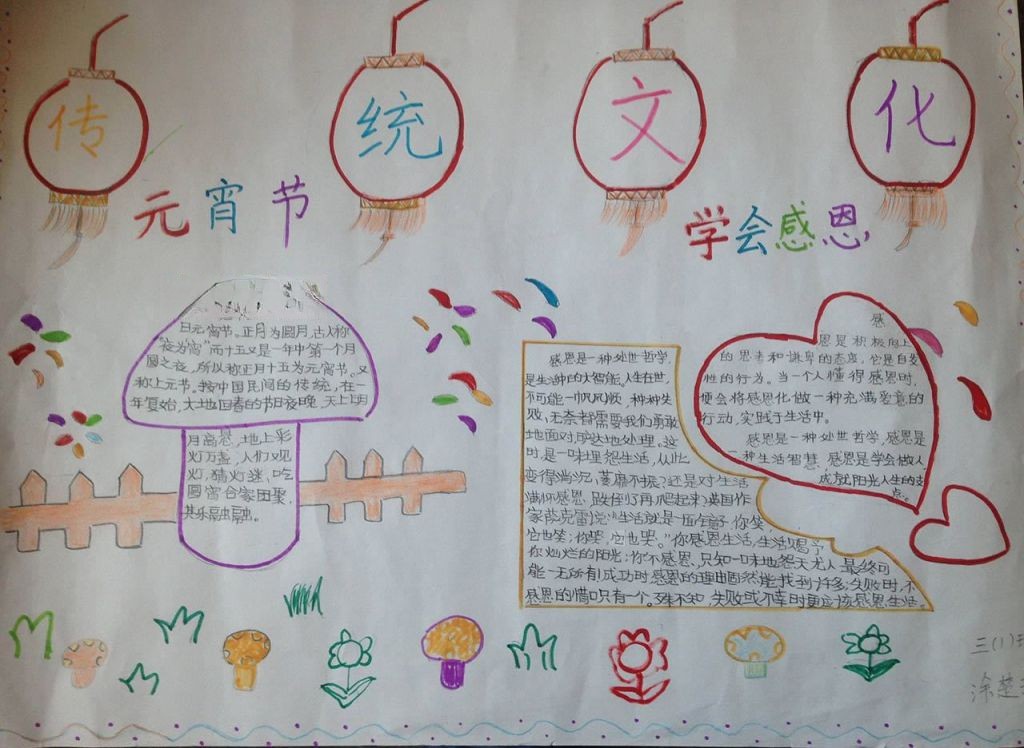 传统文化
元宵节
学会感恩
日元宵节。正月为圆月,古人称
“夜为宵”而十五又是一年中第一个月
圆之夜,所以称正月十五为元宵节。又
称上元节,我中国民间的传统,在一
年复始,大地回春的节日夜晚,天上明
月高悬,地上彩
灯万盏,人们又观
灯,猜灯迷,吃
圆宵合家团聚,
其乐融融。
感恩是一种处世哲学,
是生活中的大智能,人生在世,
不可能一帆风顺,种种失
败,无奈都需要我们勇敢
地面对,旷达地处理。这
时,是一味埋怨生活,从此
变得消沉,萎靡不振?还是对生活
满怀感恩,跌倒了再爬起来?英国作
家萨克雷说:“生活就是一面镜子,你笑,
它也笑;你哭,它也哭。”你感恩生活,生活赐予
你灿烂的阳光;你不感恩,只知一味地怨天尤人,最终可
能一无所有!成功时感恩的理由固然能找到许多;失败时,不
感恩的借口只有一个。殊不知,失败或不幸时更应该感恩生活。
感
恩是积极向上
的思考和谦卑的态度,它是自发
性的行为。当一个人懂得感恩时,
便会将感恩化做一种充满爱意的
行动,实践于生活中。
感恩是一种处世哲学,感恩是
一种生活智慧,感恩是学会做人,
成就阳光人生的支
点。
三(1)
涂楚